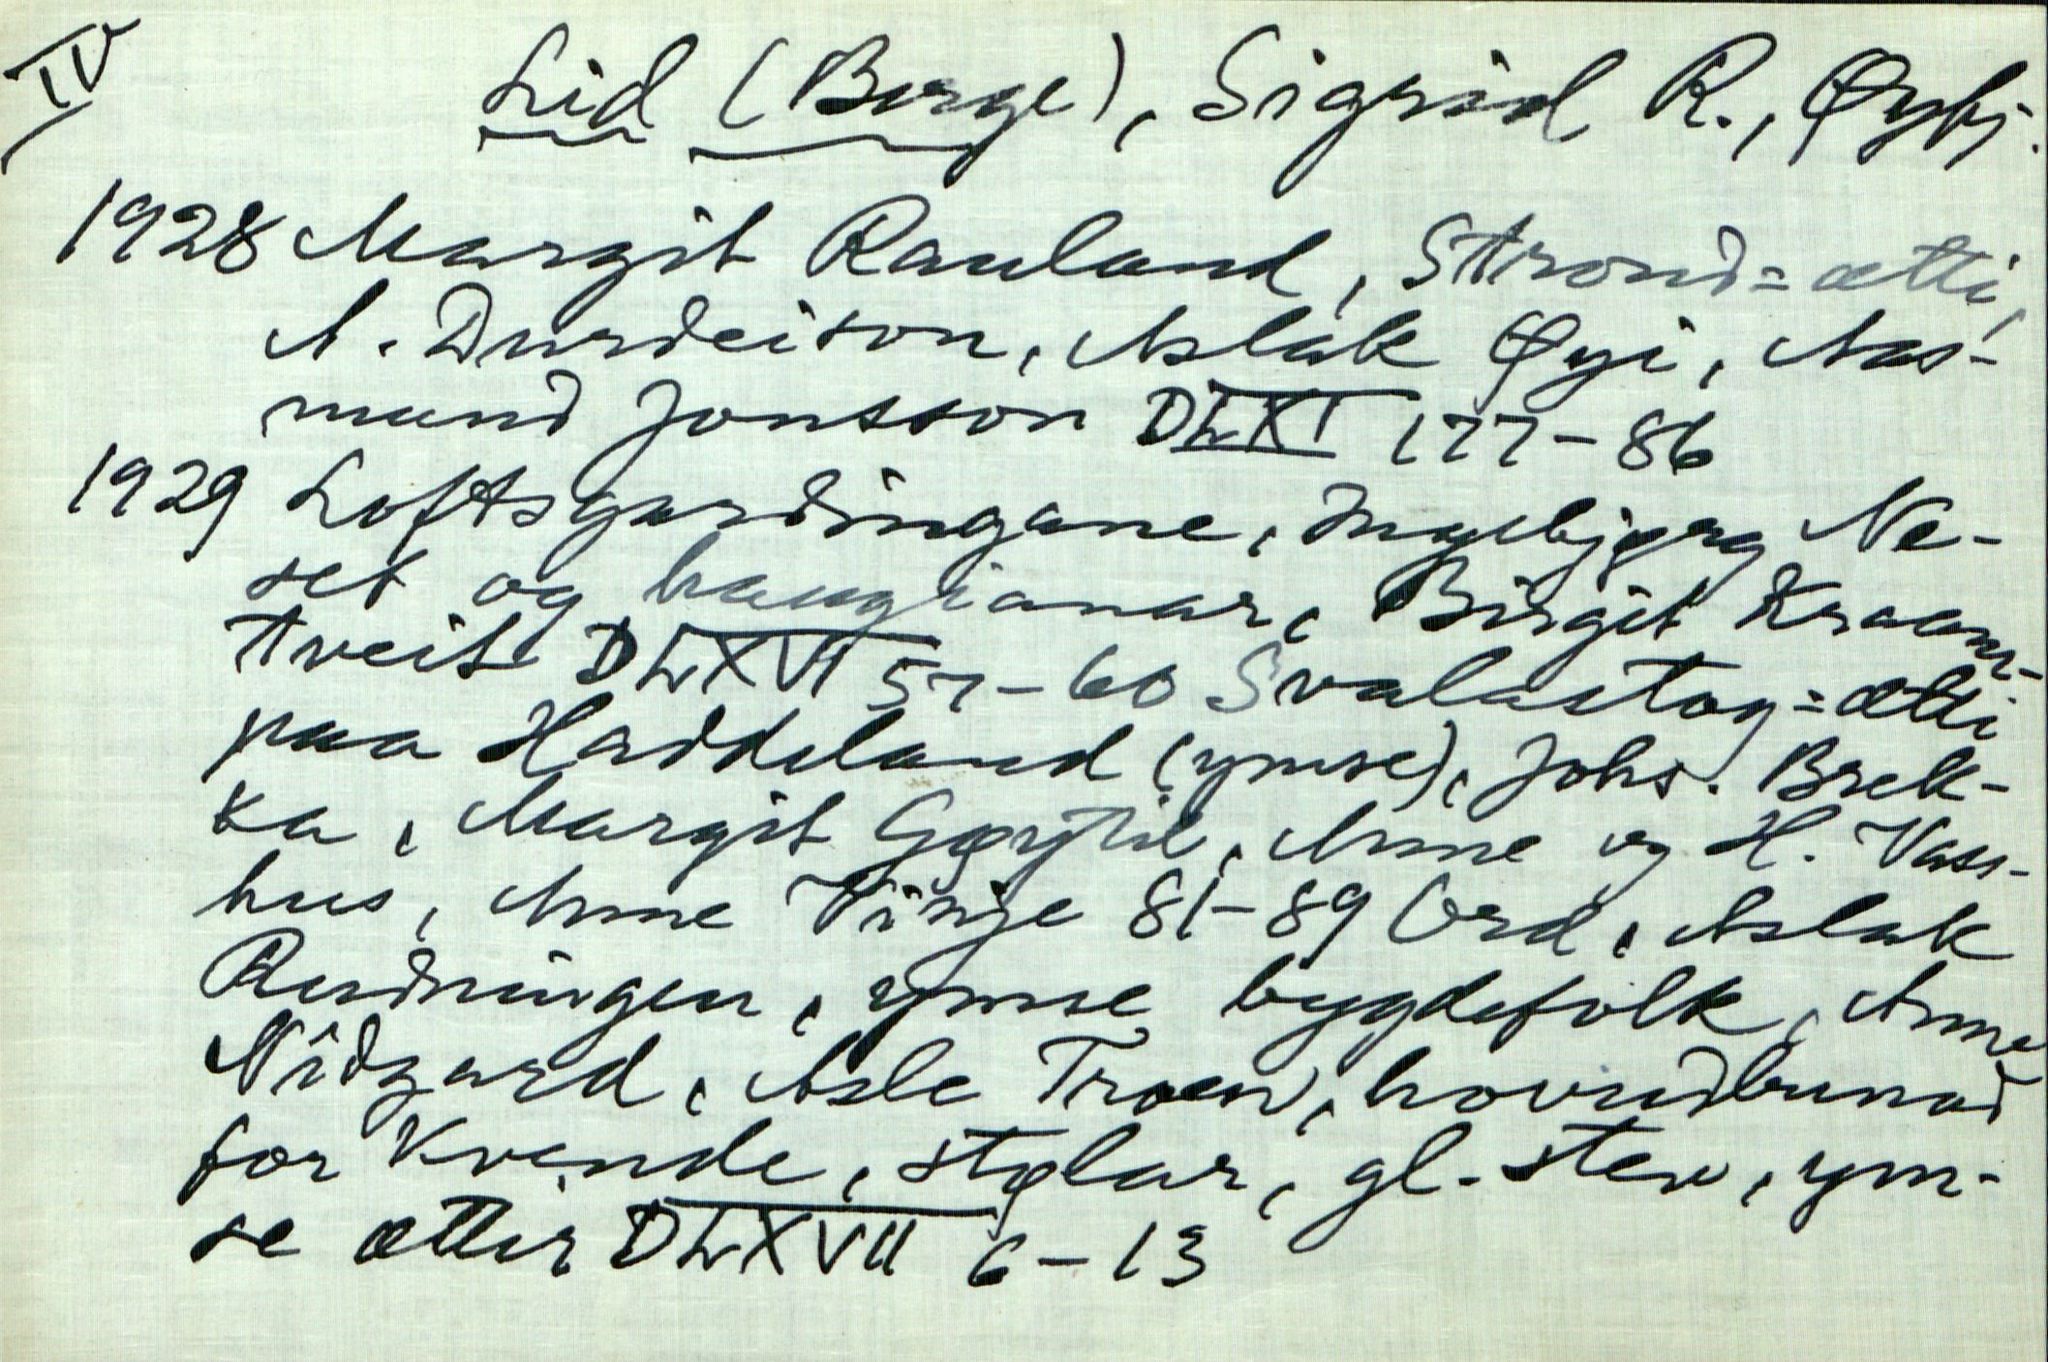 IV
Lid (Borge), Sigrid R., Øyfj.
1928 Margit Rauland, Strond=ætti,
A. Durdeison, Aslak Øyi, Aas-
mund Jonsson DLXI 177-86
1929 Loftsgardingane, Ingebjørg Ne-
set og haugianar, Birgit Kraam-
tveit DLXVI 57-60 Svalastog=ætti
paa Haddeland (ymse), Johs. Brek-
ka, Margit Gøytil, Anne og H. Vass-
hus, Anne Vinje 81-89 Ord, Aslak
Rudningen, ymse bygdefolk, Anne
Nidgard, Asle Troen, hovudbunad
for Kvende, stølar, gl. stev, ym-
se ættir DLXVII 6-13